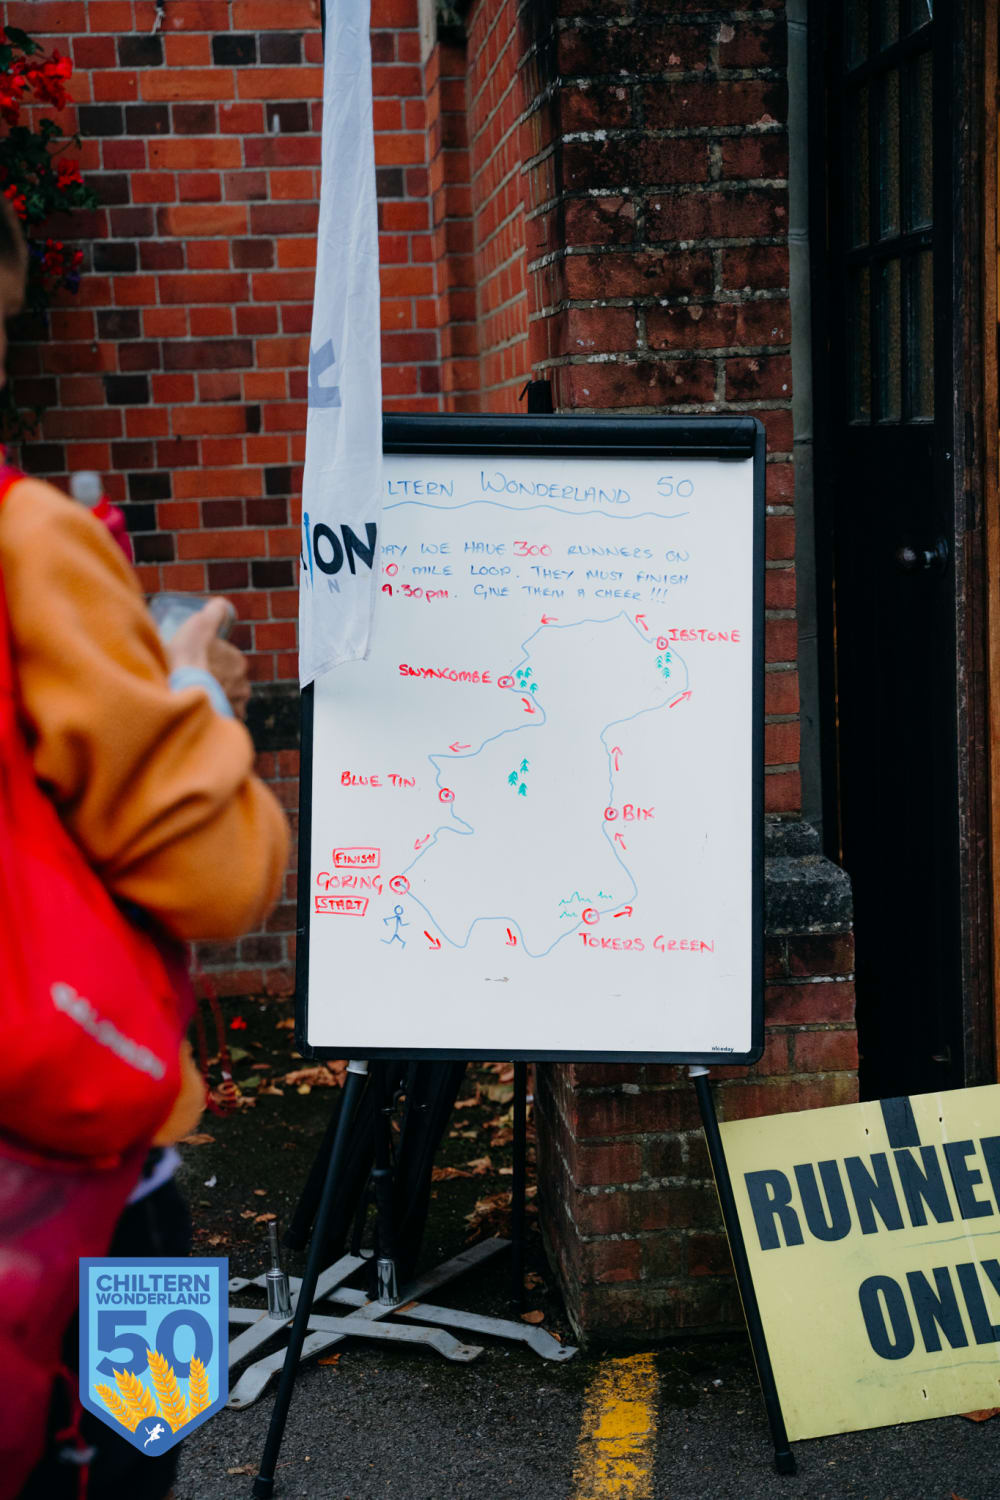 ILTERN WONDERLAND 50
DAY WE HAVE 300 RUNNERS ON
50 MILE LOOP. THEY MUST FINISH
9.30pm. GIVE THEM A CHEER !!!
IBSTONE
SWYNCOMBE
BLUE TIN
BIX
FINISH
GORING
START
TOKERS GREEN
niceday
ION
N
RUNNE
ONLY
CHILTERN
WONDERLAND
50